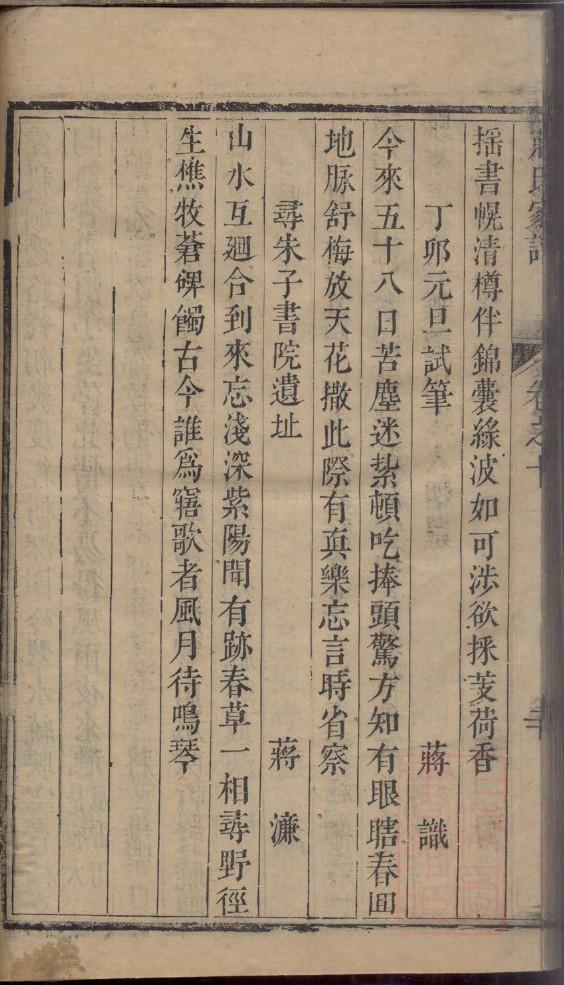 蔣氏家譜 卷之十
搖書幌清樽伴錦囊綠波如可涉欲採芰荷香
丁卯元旦試筆 蔣識
今來五十八日苦塵迷紮頓吃捧頭驚方知有眼瞎春回
地脈舒梅放天花撒此際有眞樂忘言時省察
尋朱子書院遺址 蔣濂
山水互廻合到來忘淺深紫陽聞有跡春草一相尋野徑
生樵牧蒼碑觸古今誰爲寤歌者風月待鳴琴